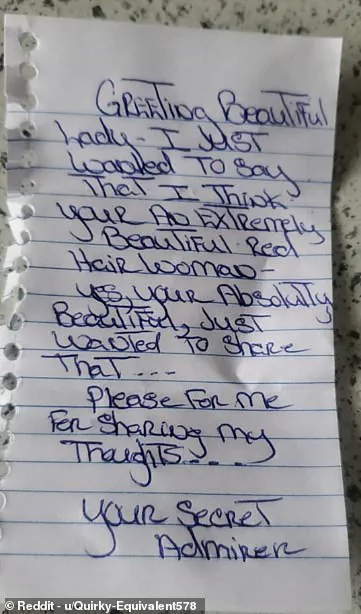 GREETING BEAUTIFUL
Lady - I JUST
WANTED TO SAY
THAT I THINK
YOUR AN EXTREMELY
BEAUTIFUL RED
HAIR WOMAN -
YES, YOUR ABSOLUTLY
BEAUTIFUL, JUST
WANTED TO SHARE
THAT...
PLEASE FOR ME
FOR SHARING MY
THOUGHTS....
YOUR SECRET
ADMIRER
© Reddit - u/Quirky-Equivalent578